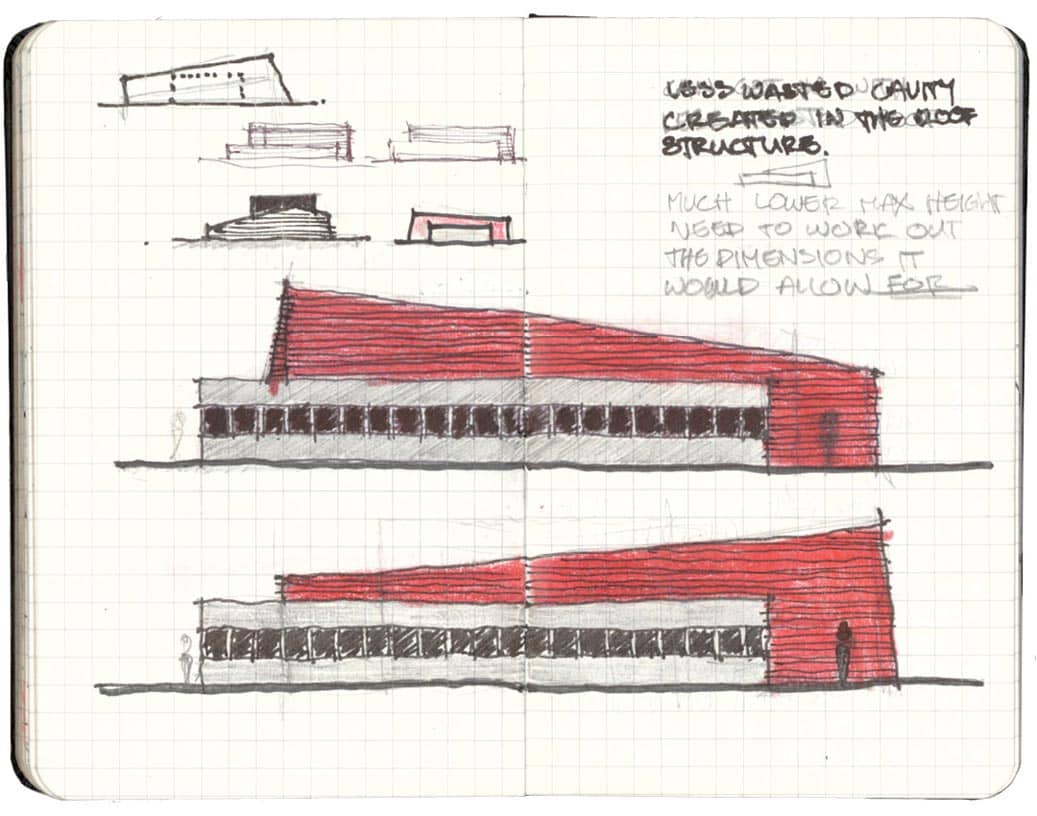 LESS WASTED CAVITY
CREATED IN THE ROOF
STRUCTURE.
MUCH LOWER MAX HEIGHT
NEED TO WORK OUT
THE DIMENSIONS IT
WOULD ALLOW FOR